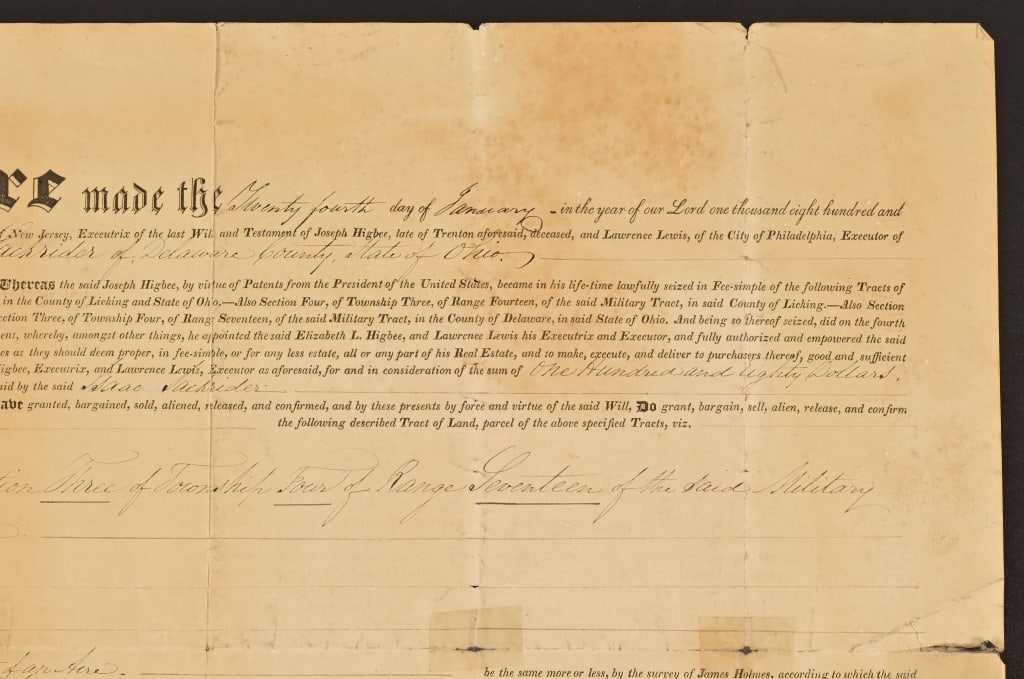 re made the Twenty fourth day of January - in the year of our Lord one thousand eight hundred and
New Jersey, Executrix of the last Will and Testament of Joseph Higbee, late of Trenton aforesaid, deceased, and Lawrence Lewis, of the City of Philadelphia, Executor of
ackrider of Delaware County, State of Ohio.
Whereas the said Joseph Higbee, by virtue of Patents from the President of the United States, became in his life-time lawfully seized in Fee-simple of the following Tracts of
in the County of Licking and State of Ohio.—Also Section Four, of Township Three, of Range Fourteen, of the said Military Tract, in said County of Licking.—Also Section
ection Three, of Township Four, of Range Seventeen, of the said Military Tract, in the County of Delaware, in said State of Ohio. And being so thereof seized, did on the fourth
ent, whereby, amongst other things, he appointed the said Elizabeth L. Higbee, and Lawrence Lewis his Executrix and Executor, and fully authorized and empowered the said
es as they should deem proper, in fee-simple, or for any less estate, all or any part of his Real Estate, and to make, execute, and deliver to purchasers thereof, good and sufficient
igbee, Executrix, and Lawrence Lewis, Executor as aforesaid, for and in consideration of the sum of One Hundred and Eighty Dollars.
aid by the said Isaac Sackrider
ave granted, bargained, sold, aliened, released, and confirmed, and by these presents by force and virtue of the said Will, Do grant, bargain, sell, alien, release, and confirm
the following described Tract of Land, parcel of the above specified Tracts, viz.
tion Three of Township Four of Range Seventeen of the said Military
of an Acre. be the same more or less, by the survey of James Holmes, according to which the said